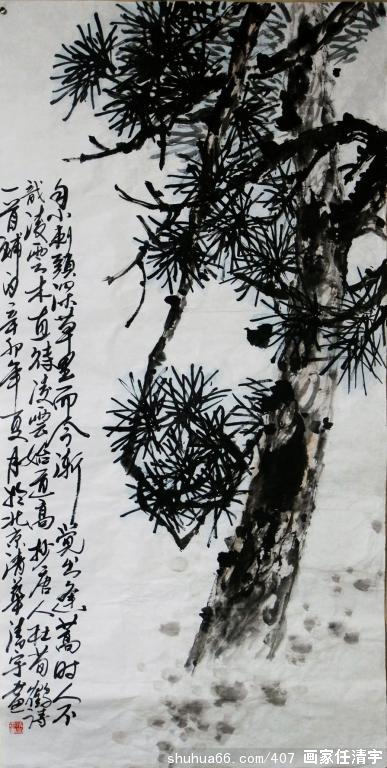 自小刺頭深草里而今漸覺出蓬蒿时人不
識凌雲木直待凌雲始道高抄唐人杜荀鶴诗
一首补白辛卯年夏月於北京清華清宇画
shuhua66.com/407 画家任清宇